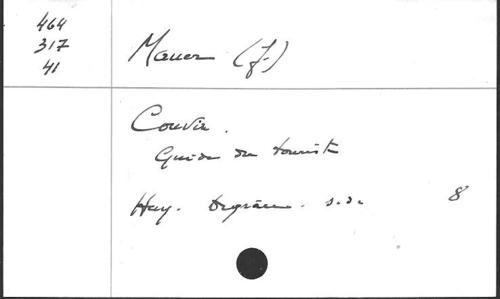 464
317
41
Mauer (J.)
Couvin.
Guide du touriste
Huy. Degrâce. s.d. 8